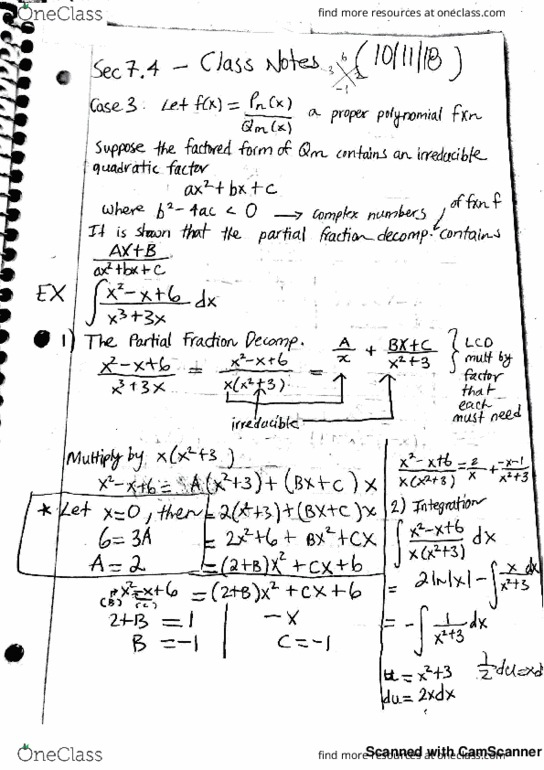 OneClass
find more resources at oneclass.com
Sec 7.4 - Class Notes (10/11/18)
Case 3: Let f(x) = Pn(x)/Qm(x) a proper polynomial fxn
Suppose the factored form of Qm contains an irreducible
quadratic factor
ax²+bx+c
where b²-4ac < 0 → complex numbers
of fxn f
It is shown that the partial fraction decomp. contains
AX+B/ax²+bx+c
EX ∫ x²-x+6/x³+3x dx
1) The Partial Fraction Decomp.
x²-x+6/x³+3x = x²-x+6/x(x²+3) = A/x + BX+C/x²+3
LCD
mult by
factor
that
each
must need
irreducible
Multiply by x(x²+3)
x²-x+6 = A(x²+3)+(BX+C)x
* Let x=0, then = 2(x²+3)+(BX+C)x
6=3A = 2x²+6+BX²+CX
A=2 = (2+B)x²+CX+6
x²-x+6 = (2+B)x²+CX+6
(B) (C)
2+B=1 -x
B=-1 C=-1
x²-x+6/x(x²+3) = 2/x + -x-1/x²+3
2) Integration
∫ x²-x+6/x(x²+3) dx
= 2ln|x| - ∫ x/x²+3 dx
= - ∫ 1/x²+3 dx
u = x²+3 1/2 du=xd
du = 2xdx
OneClass
find more resources at oneclass.com
Scanned with CamScanner